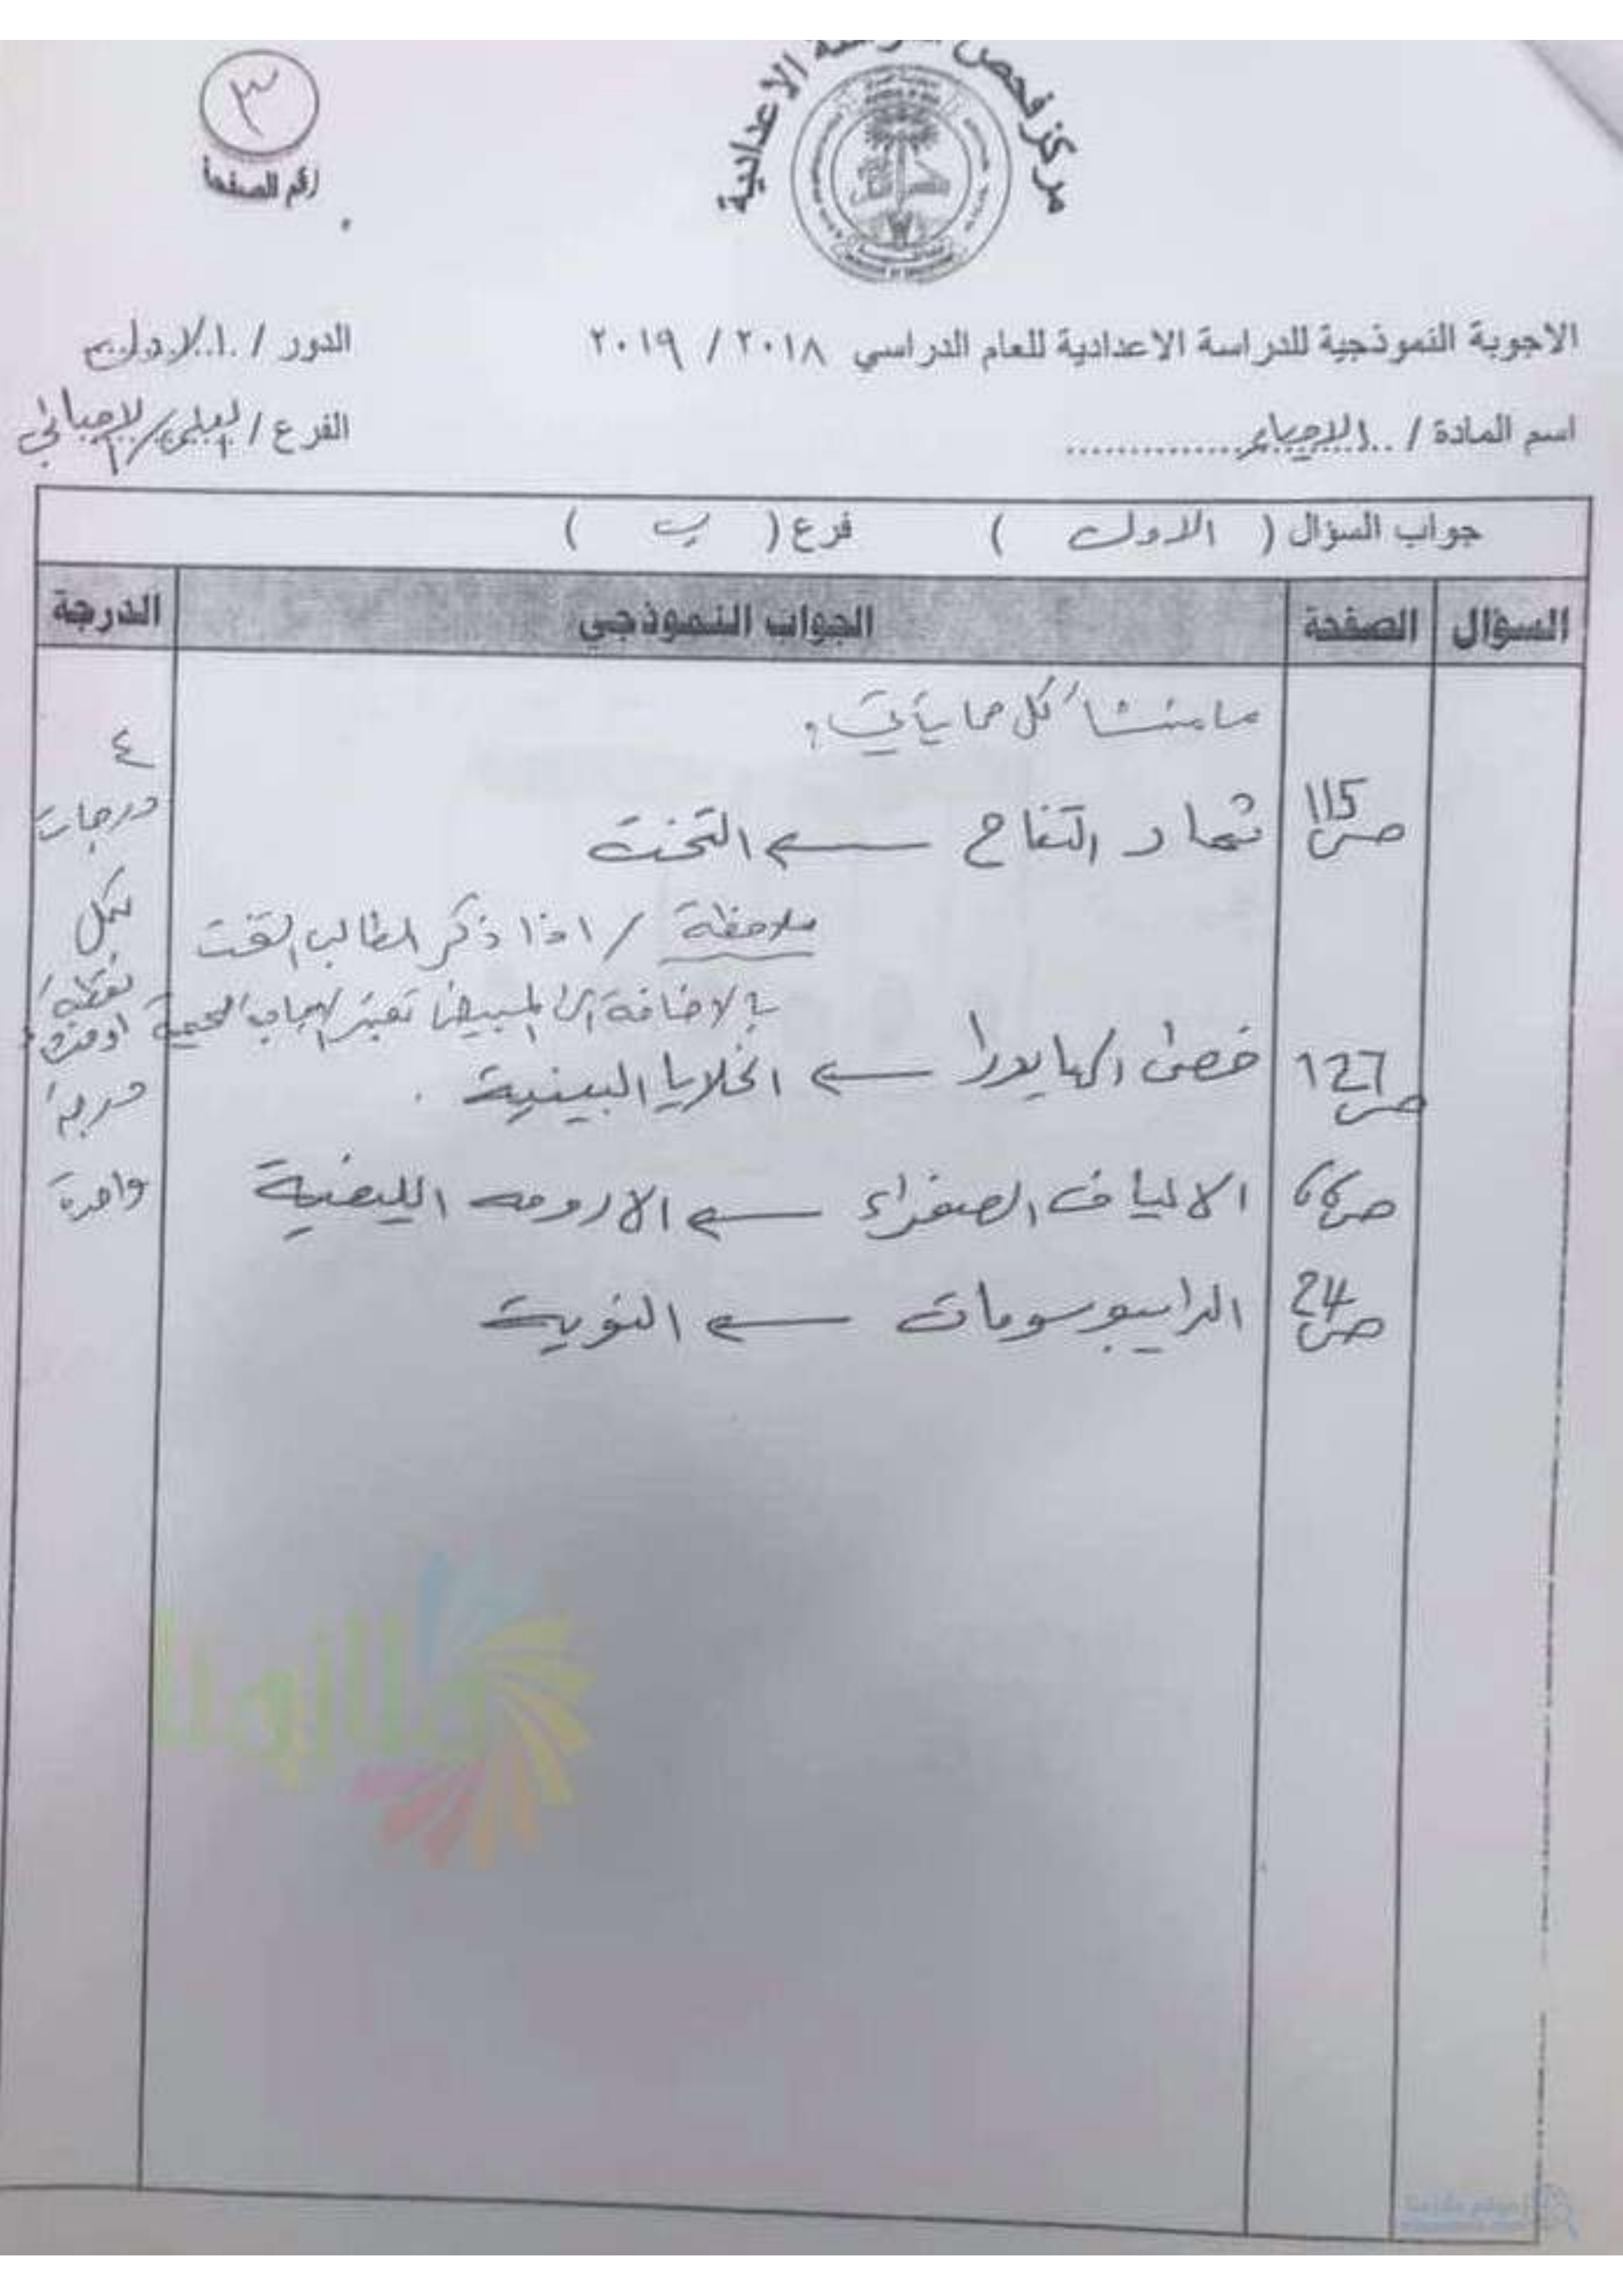 مركز فحص الدراسة الاعدادية
٣
رقم الصفحة
الاجوبة النموذجية للدراسة الاعدادية للعام الدراسي ٢٠١٨ / ٢٠١٩
الدور / الاول
اسم المادة / الاحياء
الفرع / العلمي / الاحيائي
جواب السؤال ( الاول ) فرع ( ب )
السؤال الصفحة الجواب النموذجي الدرجة
ما منشأ كل مما يأتي :
٤
درجات
لكل
نقطة
درجة
واحدة
ص115 ثمار التفاح ← التخت
ملاحظة / اذا ذكر الطالب التخت
بالاضافة الى المبيض تعتبر الاجابة صحيحة
ص127 خصى الهايدرا ← الخلايا البينية .
ص66 الالياف الصفراء ← الارومه الليفية
ص24 الرايبوسومات ← النوية
ملازمنا
موقع ملازمنا